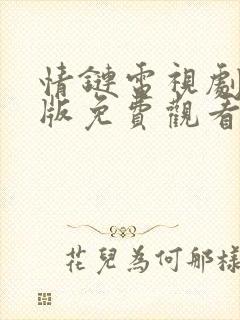 情鏈電視劇
版免費觀看
花兒為何那樣